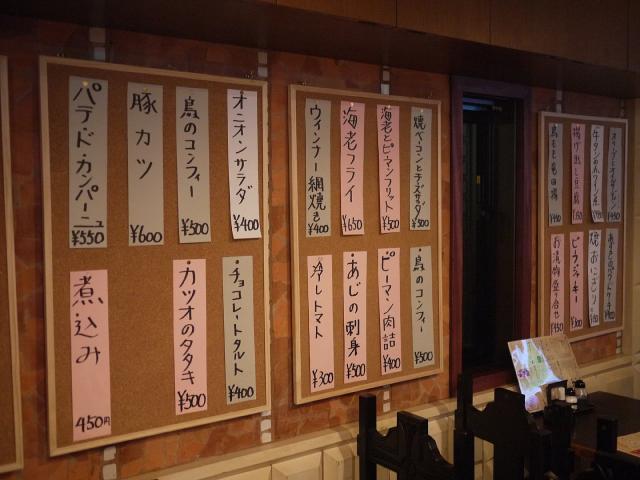 パテ・ド・カンパーニュ
¥550
豚カツ
¥600
鳥のコンフィー
¥500
オニオンサラダ
¥400
煮込み
450円
カツオのタタキ
¥500
チョコレートタルト
¥400
ウィンナー網焼き
¥400
海老フライ
¥650
海老とピーマンフリット
¥500
焼ベーコンとチーズサラダ
¥500
冷しトマト
¥300
あじの刺身
¥500
ピーマン肉詰
¥400
鳥のコンフィー
¥500
鳥もも竜田揚
揚げ出し豆腐
牛タンの赤ワイン煮
お漬物盛り合せ
ビーフジャーキー
¥300
焼おにぎり